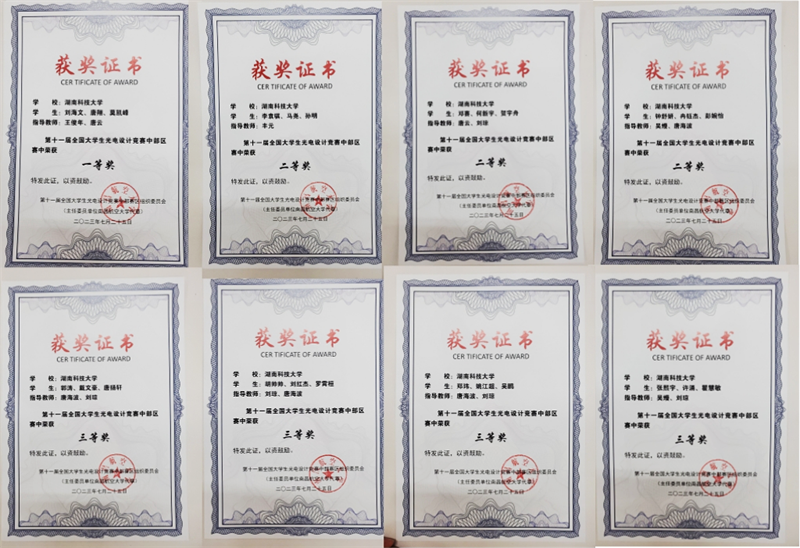 获奖证书
CER TIFICATE OF AWARD
学 校：湖南科技大学
学 生：刘海文、唐翔、莫凯峰
指导教师：王俊年、唐云
第十一届全国大学生光电设计竞赛中部区
赛中荣获
一等奖
特发此证，以资鼓励。
第十一届全国大学生光电设计竞赛中部赛区组织委员会
（主任委员单位南昌航空大学代章）
二〇二三年七月二十五日
获奖证书
CER TIFICATE OF AWARD
学 校：湖南科技大学
学 生：李袁骐、马亮、孙明
指导教师：丰元
第十一届全国大学生光电设计竞赛中部区
赛中荣获
二等奖
特发此证，以资鼓励。
第十一届全国大学生光电设计竞赛中部赛区组织委员会
（主任委员单位南昌航空大学代章）
二〇二三年七月二十五日
获奖证书
CER TIFICATE OF AWARD
学 校：湖南科技大学
学 生：邓赛、何振宇、贺宇舟
指导教师：唐云、刘琼
第十一届全国大学生光电设计竞赛中部区
赛中荣获
二等奖
特发此证，以资鼓励。
第十一届全国大学生光电设计竞赛中部赛区组织委员会
（主任委员单位南昌航空大学代章）
二〇二三年七月二十五日
获奖证书
CER TIFICATE OF AWARD
学 校：湖南科技大学
学 生：钟舒婷、冉钰杰、彭婉怡
指导教师：吴橙、唐海波
第十一届全国大学生光电设计竞赛中部区
赛中荣获
二等奖
特发此证，以资鼓励。
第十一届全国大学生光电设计竞赛中部赛区组织委员会
（主任委员单位南昌航空大学代章）
二〇二三年七月二十五日
获奖证书
CER TIFICATE OF AWARD
学 校：湖南科技大学
学 生：郭涛、戴文豪、唐绕轩
指导教师：唐海波、刘琼
第十一届全国大学生光电设计竞赛中部区
赛中荣获
三等奖
特发此证，以资鼓励。
第十一届全国大学生光电设计竞赛中部赛区组织委员会
（主任委员单位南昌航空大学代章）
二〇二三年七月二十五日
获奖证书
CER TIFICATE OF AWARD
学 校：湖南科技大学
学 生：胡帅帅、刘红杰、罗霄
指导教师：刘琼、唐海波
第十一届全国大学生光电设计竞赛中部区
赛中荣获
三等奖
特发此证，以资鼓励。
第十一届全国大学生光电设计竞赛中部赛区组织委员会
（主任委员单位南昌航空大学代章）
二〇二三年七月二十五日
获奖证书
CER TIFICATE OF AWARD
学 校：湖南科技大学
学 生：邓玮、姚江超、吴鹏
指导教师：唐海波、刘琼
第十一届全国大学生光电设计竞赛中部区
赛中荣获
三等奖
特发此证，以资鼓励。
第十一届全国大学生光电设计竞赛中部赛区组织委员会
（主任委员单位南昌航空大学代章）
二〇二三年七月二十五日
获奖证书
CER TIFICATE OF AWARD
学 校：湖南科技大学
学 生：张熙宇、许潇、瞿慧敏
指导教师：吴橙、刘琼
第十一届全国大学生光电设计竞赛中部区
赛中荣获
三等奖
特发此证，以资鼓励。
第十一届全国大学生光电设计竞赛中部赛区组织委员会
（主任委员单位南昌航空大学代章）
二〇二三年七月二十五日